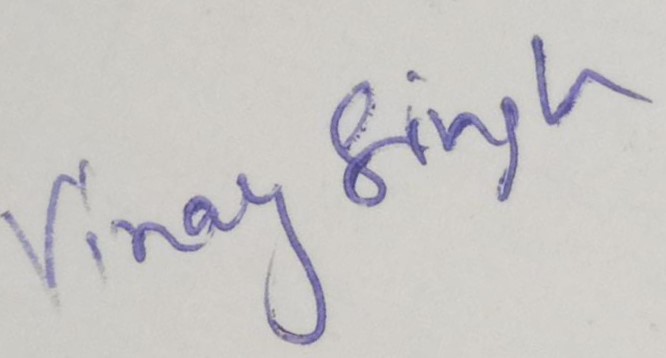 Vinay Singh